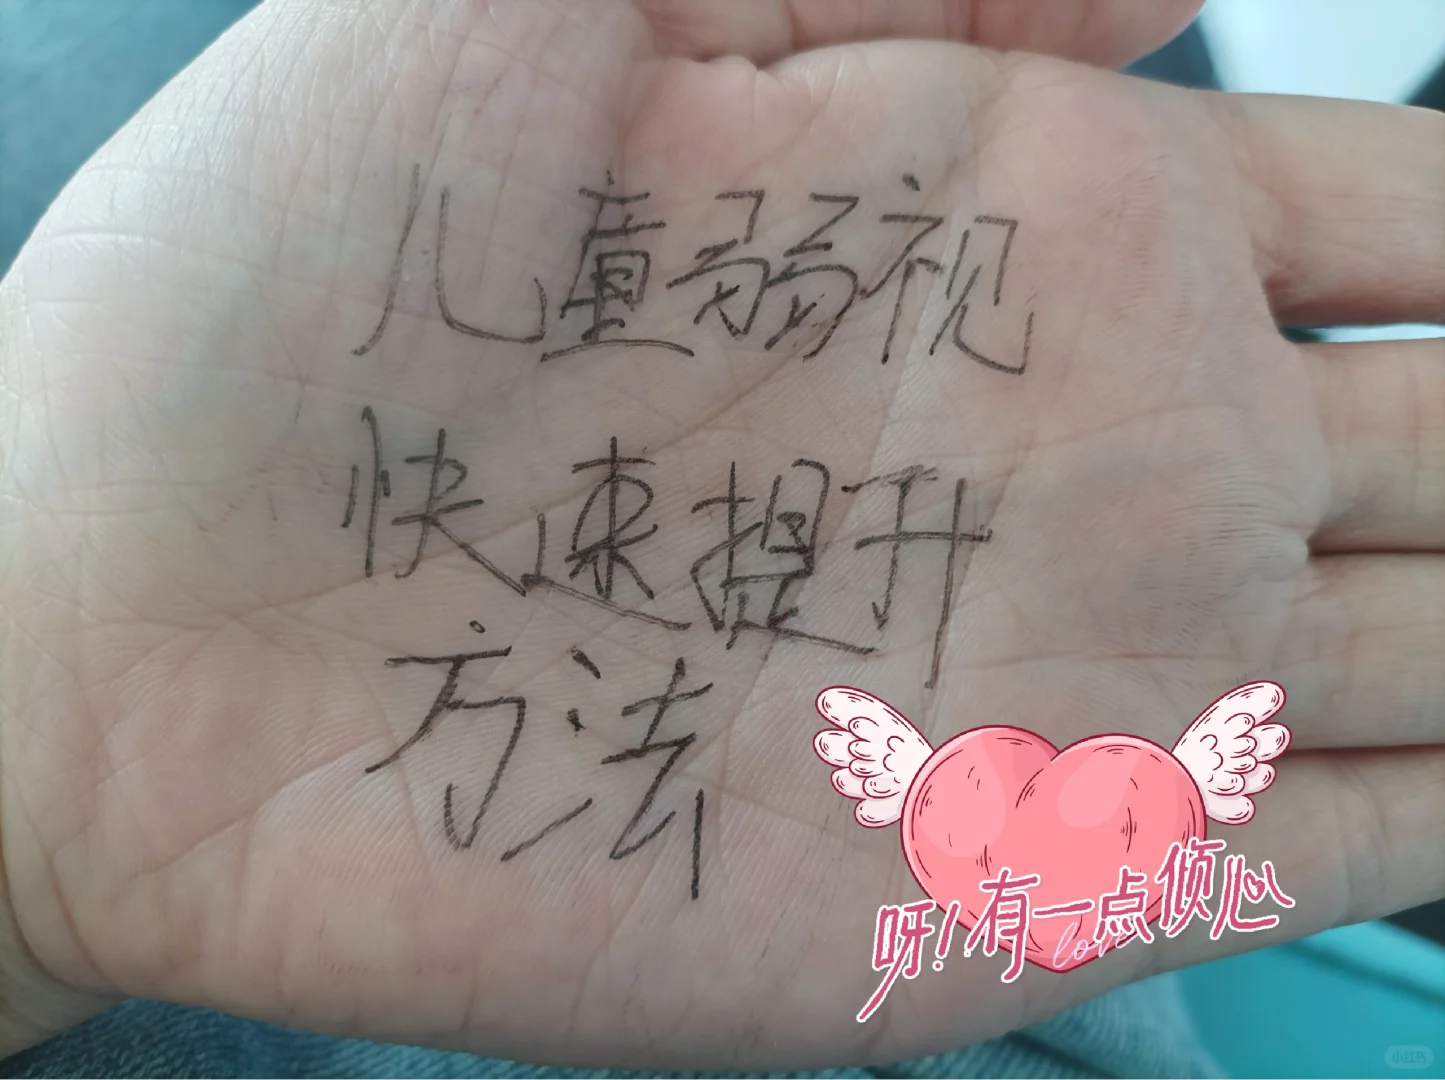 儿童弱视
快速提升
方法
呀!有一点倾心
love
小红书